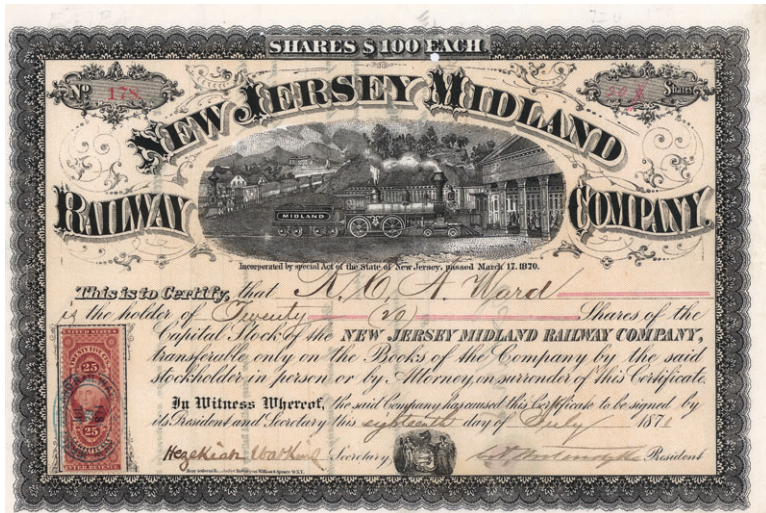 SHARES $100 EACH.
No 178
Shares
NEW JERSEY MIDLAND
RAILWAY COMPANY.
MIDLAND
Incorporated by special Act of the State of New Jersey, passed March 17. 1870.
This is to Certify, that R. C. A. Ward
is the holder of Twenty (20) Shares of the
Capital Stock of the NEW JERSEY MIDLAND RAILWAY COMPANY,
transferable only on the Books of the Company by the said
stockholder in person or by Attorney, on surrender of this Certificate.
In Witness Whereof, the said Company has caused this Certificate to be signed by
its President and Secretary this eighteenth day of July 1871
Hezekiah Watkins Secretary President
25
25
INTER. REVENUE